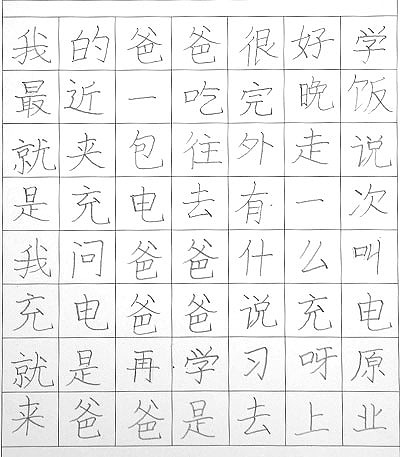 我的爸爸很好学
最近一吃完晚饭
就夹包往外走说
是充电去有一次
我问爸爸什么叫
充电爸爸说充电
就是再学习呀原
来爸爸是去上业